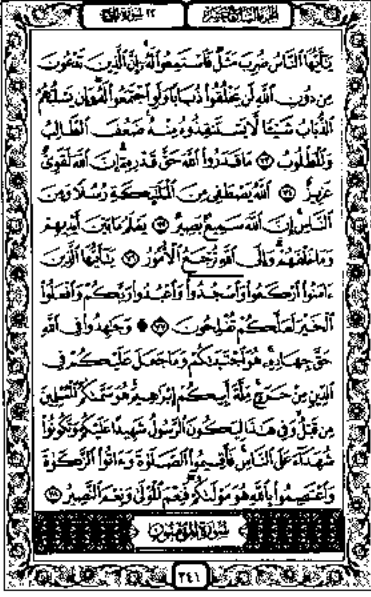 الجزء السابع عشر
٢٢ سورة الحج
يَٰٓأَيُّهَا ٱلنَّاسُ ضُرِبَ مَثَلٞ فَٱسۡتَمِعُواْ لَهُۥٓۚ إِنَّ ٱلَّذِينَ تَدۡعُونَ
مِن دُونِ ٱللَّهِ لَن يَخۡلُقُواْ ذُبَابٗا وَلَوِ ٱجۡتَمَعُواْ لَهُۥۖ وَإِن يَسۡلُبۡهُمُ
ٱلذُّبَابُ شَيۡـٔٗا لَّا يَسۡتَنقِذُوهُ مِنۡهُۚ ضَعُفَ ٱلطَّالِبُ
وَٱلۡمَطۡلُوبُ ٧٣ مَا قَدَرُواْ ٱللَّهَ حَقَّ قَدۡرِهِۦٓۚ إِنَّ ٱللَّهَ لَقَوِيٌّ
عَزِيزٌ ٧٤ ٱللَّهُ يَصۡطَفِي مِنَ ٱلۡمَلَٰٓئِكَةِ رُسُلٗا وَمِنَ
ٱلنَّاسِۚ إِنَّ ٱللَّهَ سَمِيعُۢ بَصِيرٞ ٧٥ يَعۡلَمُ مَا بَيۡنَ أَيۡدِيهِمۡ
وَمَا خَلۡفَهُمۡۚ وَإِلَى ٱللَّهِ تُرۡجَعُ ٱلۡأُمُورُ ٧٦ يَٰٓأَيُّهَا ٱلَّذِينَ
ءَامَنُواْ ٱرۡكَعُواْ وَٱسۡجُدُواْۤ وَٱعۡبُدُواْ رَبَّكُمۡ وَٱفۡعَلُواْ
ٱلۡخَيۡرَ لَعَلَّكُمۡ تُفۡلِحُونَ۩ ٧٧ وَجَٰهِدُواْ فِي ٱللَّهِ
حَقَّ جِهَادِهِۦۚ هُوَ ٱجۡتَبَىٰكُمۡ وَمَا جَعَلَ عَلَيۡكُمۡ فِي
ٱلدِّينِ مِنۡ حَرَجٖۚ مِّلَّةَ أَبِيكُمۡ إِبۡرَٰهِيمَۚ هُوَ سَمَّىٰكُمُ ٱلۡمُسۡلِمِينَ
مِن قَبۡلُ وَفِي هَٰذَا لِيَكُونَ ٱلرَّسُولُ شَهِيدًا عَلَيۡكُمۡ وَتَكُونُواْ
شُهَدَآءَ عَلَى ٱلنَّاسِۚ فَأَقِيمُواْ ٱلصَّلَوٰةَ وَءَاتُواْ ٱلزَّكَوٰةَ
وَٱعۡتَصِمُواْ بِٱللَّهِ هُوَ مَوۡلَىٰكُمۡۖ فَنِعۡمَ ٱلۡمَوۡلَىٰ وَنِعۡمَ ٱلنَّصِيرُ ٧٨
سورة المؤمنون
٣٤١